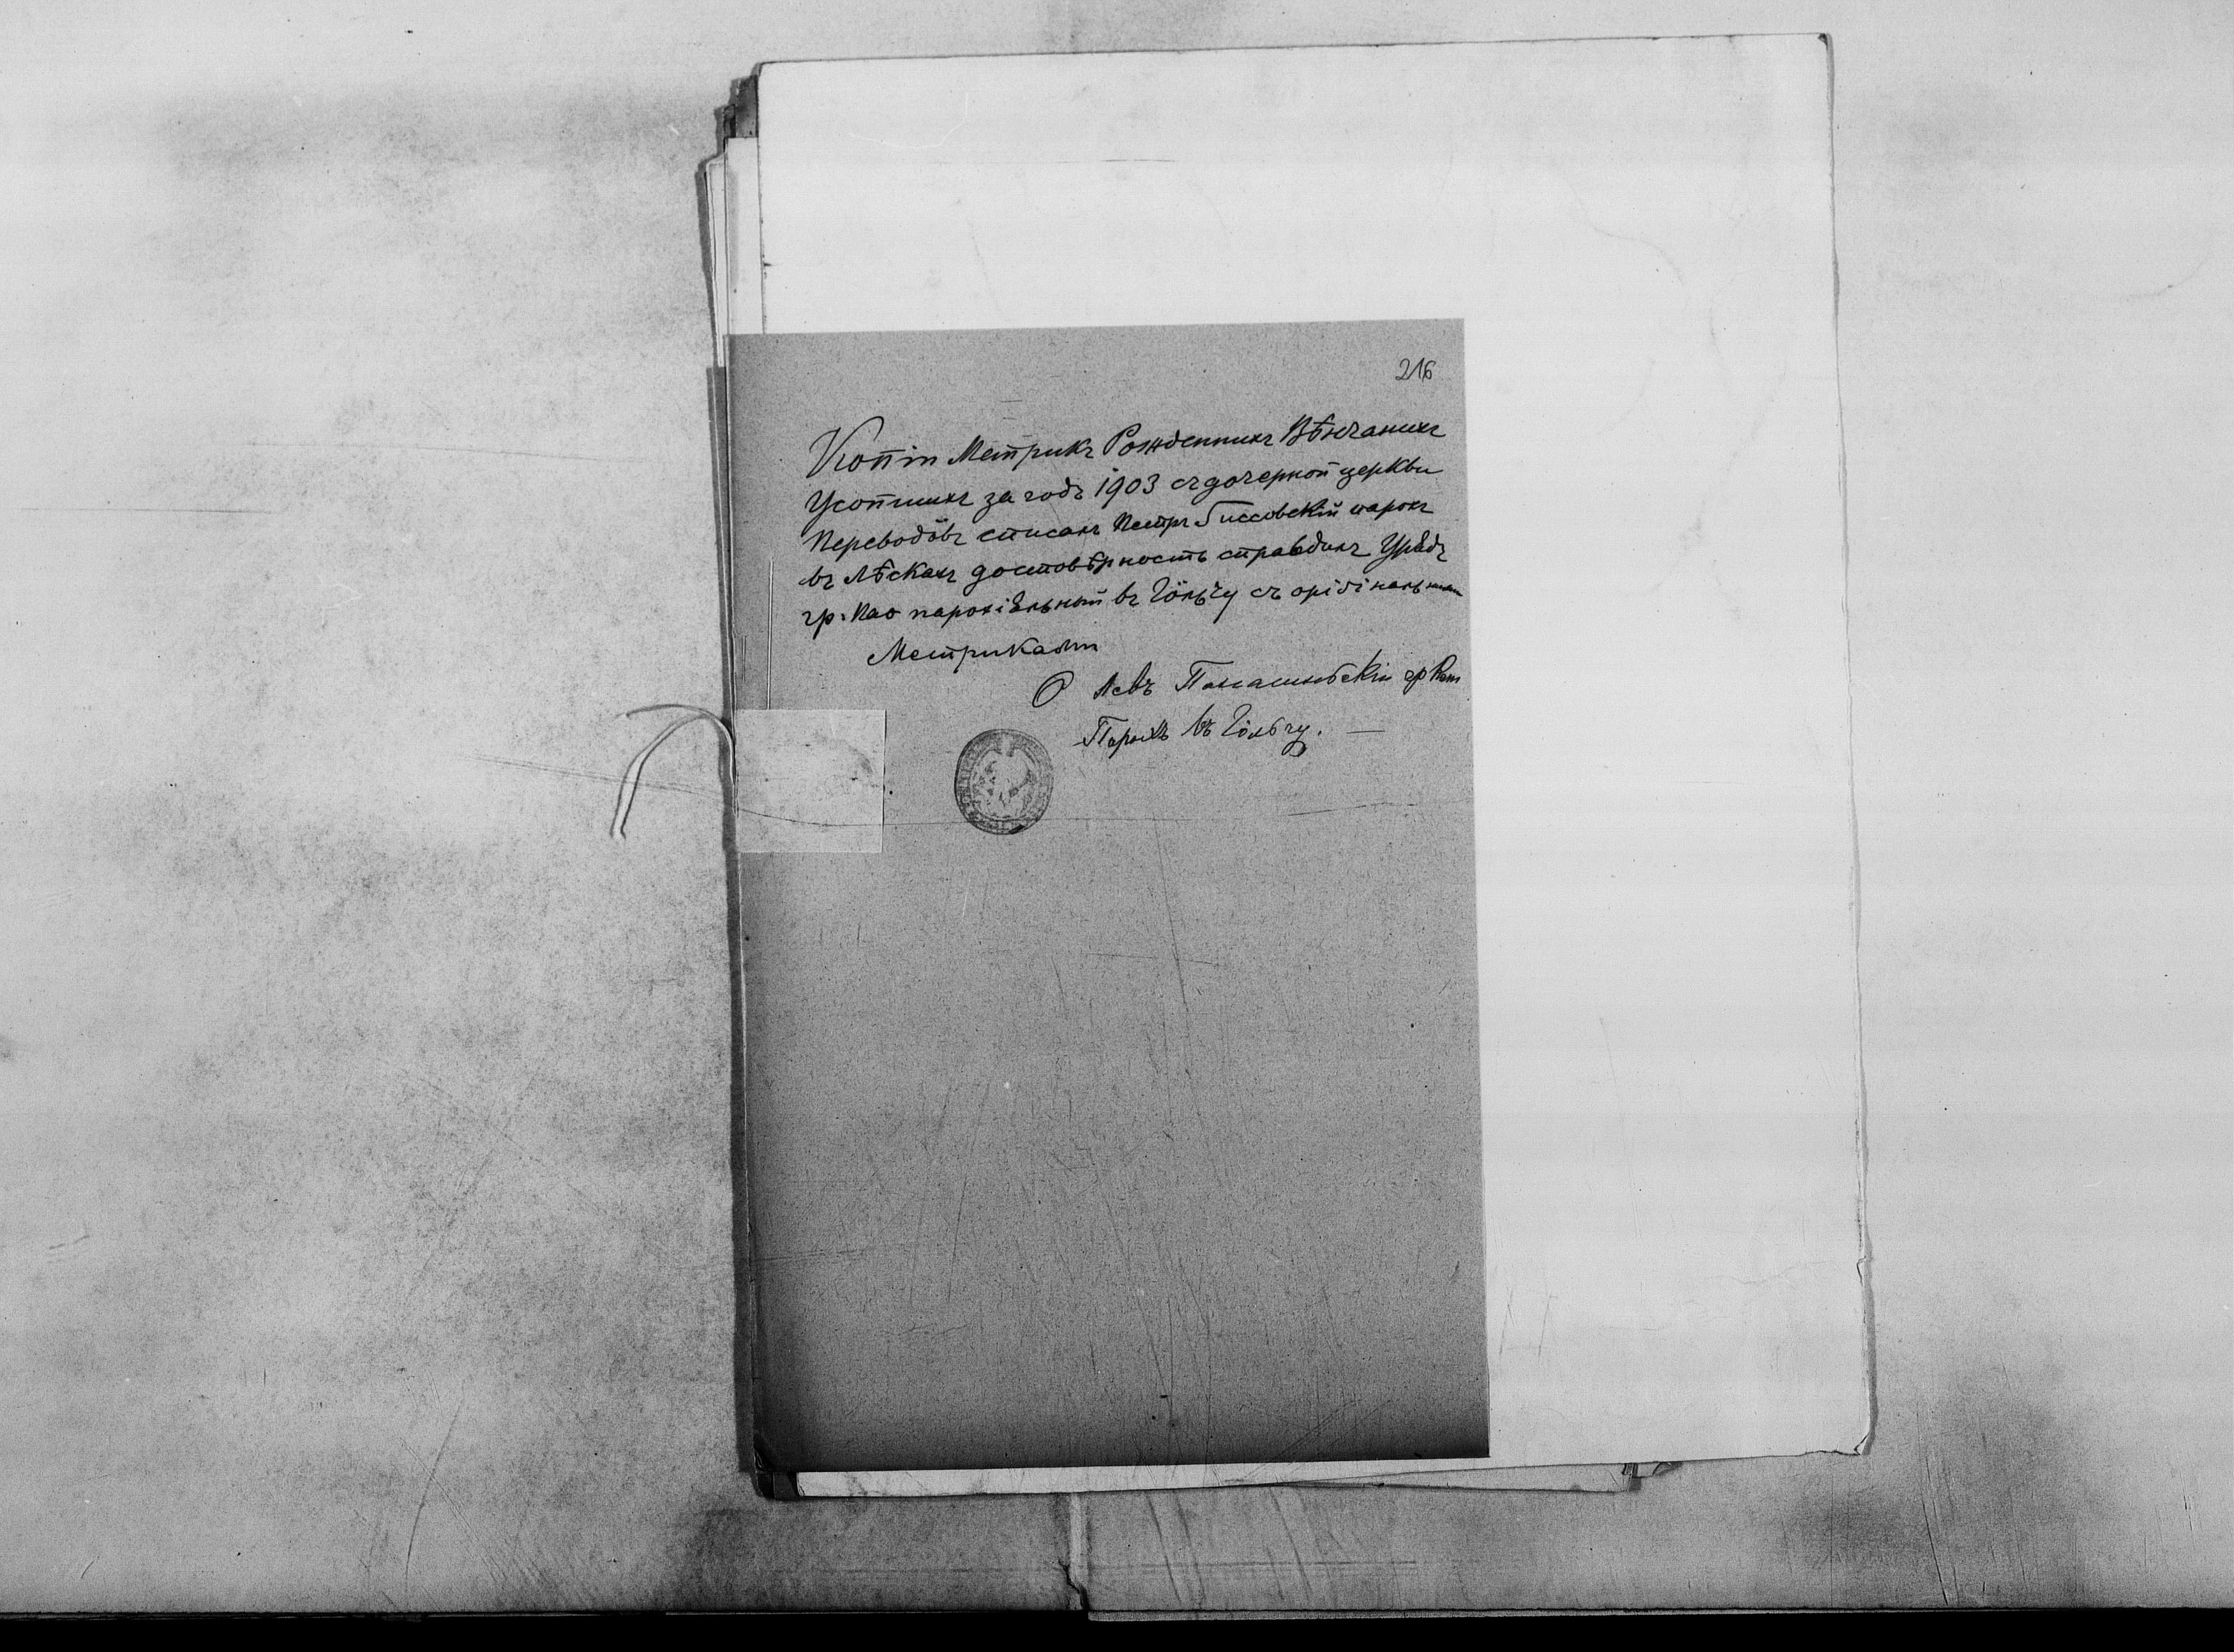 216
Копіи Метрикъ Рожденныхъ Вѣнчаныхъ
Усопшихъ за годъ 1903 съ дочерной церкви
Переводôвъ списалъ Петръ парохъ
въ Лѣскахъ достовѣрность справдилъ Урядъ
гр. Као парохіяльный въ съ оріґінальными
Метриками
О Левъ гр Кат
Парохъ въ